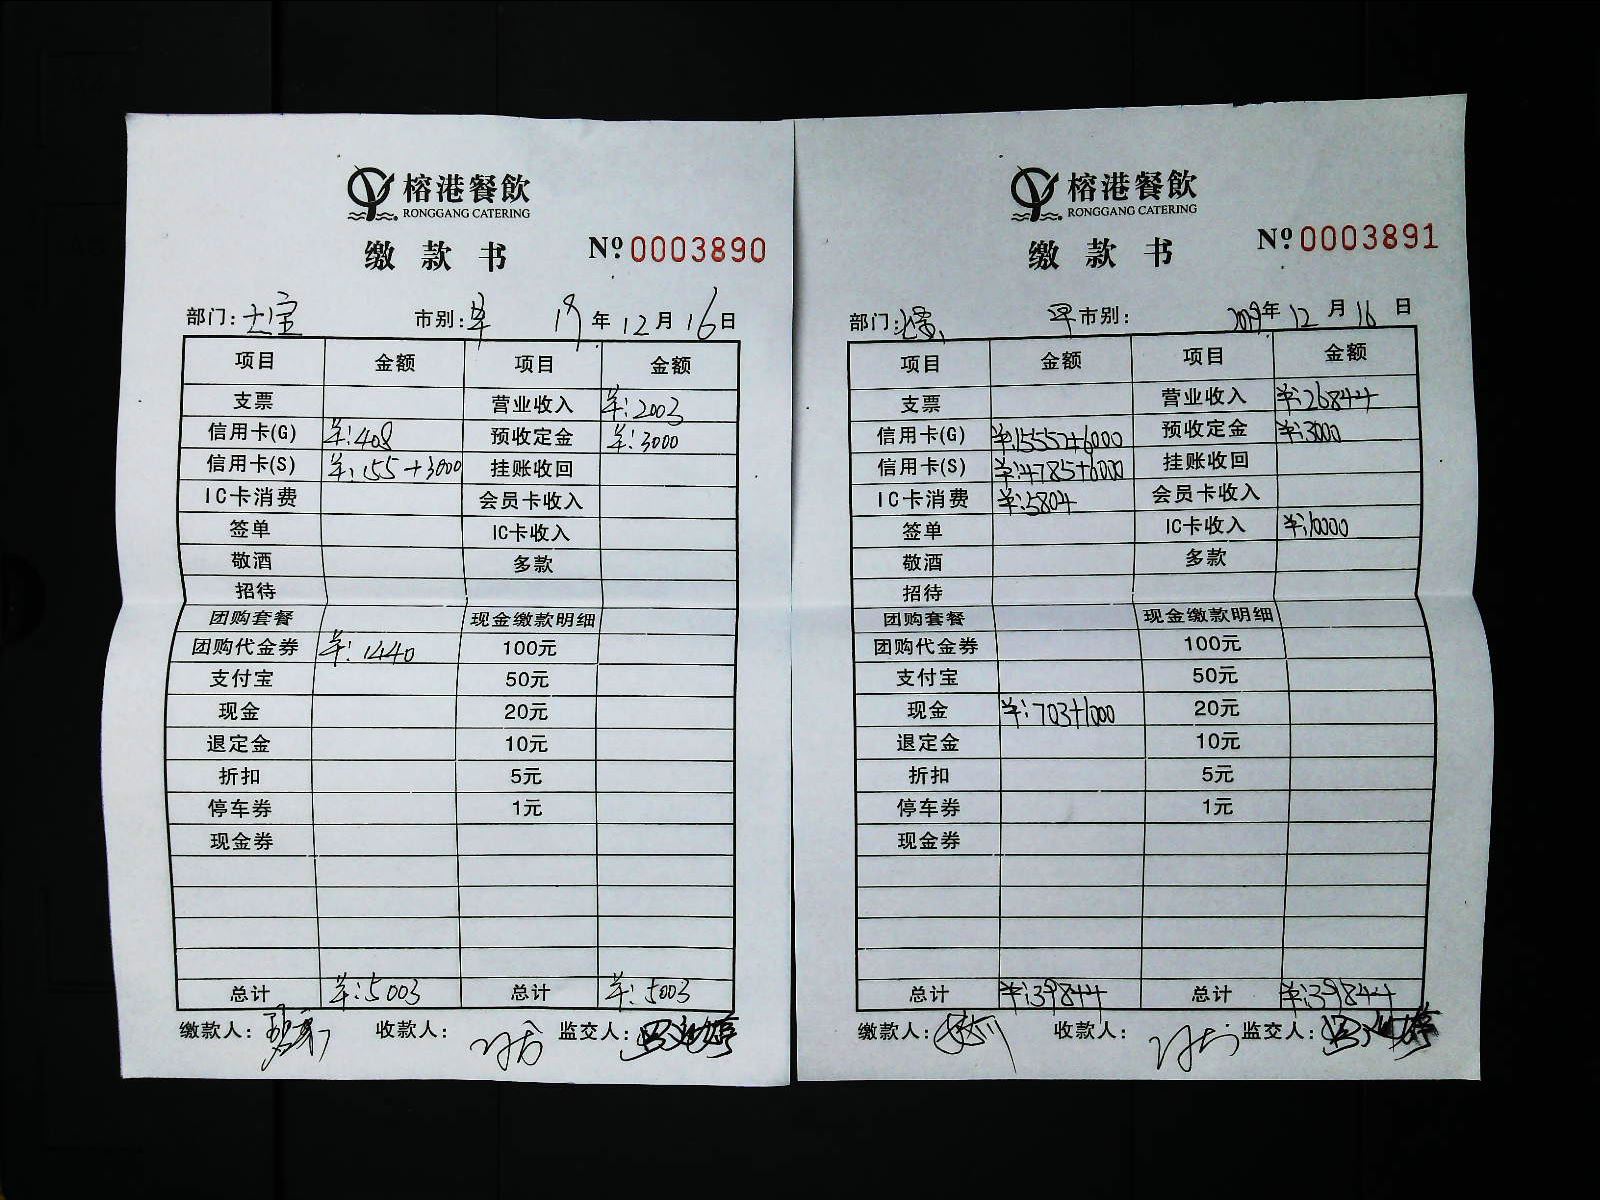 榕港餐飲
RONGGANG CATERING
缴款书 №.0003890
部门: 市别: 早 19年12月16日
项目 金额 项目 金额
支票 营业收入 ¥:2003
信用卡(G) ¥:408 预收定金 ¥:3000
信用卡(S) ¥:155+3000 挂账收回
IC卡消费 会员卡收入
签单 IC卡收入
敬酒 多款
招待
团购套餐 现金缴款明细
团购代金券 ¥:1440 100元
支付宝 50元
现金 20元
退定金 10元
折扣 5元
停车券 1元
现金券
总计 ¥:5003 总计 ¥:5003
缴款人: 收款人: 监交人:
榕港餐飲
RONGGANG CATERING
缴款书 №.0003891
部门: 早 市别: 2019年12月16日
项目 金额 项目 金额
支票 营业收入 ¥:26844
信用卡(G) ¥:15550+6000 预收定金 ¥:3000
信用卡(S) ¥:4785+6000 挂账收回
IC卡消费 ¥:5804 会员卡收入
签单 IC卡收入 ¥:10000
敬酒 多款
招待
团购套餐 现金缴款明细
团购代金券 100元
支付宝 50元
现金 ¥:703+1000 20元
退定金 10元
折扣 5元
停车券 1元
现金券
总计 ¥:39844 总计 ¥:39844
缴款人: 收款人: 监交人: